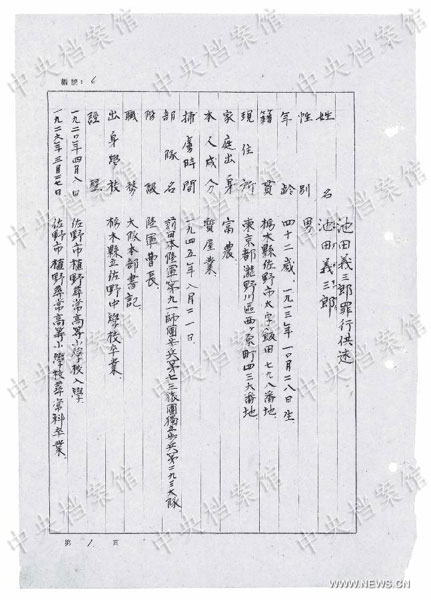 編號: 6
池田義三郎罪行供述
姓名 池田義三郎
性別 男
年齡 四十二歲、一九一三年一〇月二八日生
籍貫 栃木縣佐野市大字飯田七九八番地
現住所 東京都瀧野川區西ヶ原町四三六番地
家庭出身 富農
本人成分 質屋業
捕虜時間 一九四五年八月二一日
部隊名 前日本陸軍第九一師團步兵第七三旅團獨立步兵第二九三大隊
階級 陸軍曹長
職務 大隊本部書記
出身學校 栃木縣立佐野中學校卒業、
經歷
一九二〇年四月八日 佐野市植野尋常高等小學校入學、
一九二六年三月二七日 佐野市植野尋常高等小學校尋常科卒業、
第 1 頁
中央档案馆
中央档案馆
中央档案馆
中央档案馆
WWW.NEWS.CN